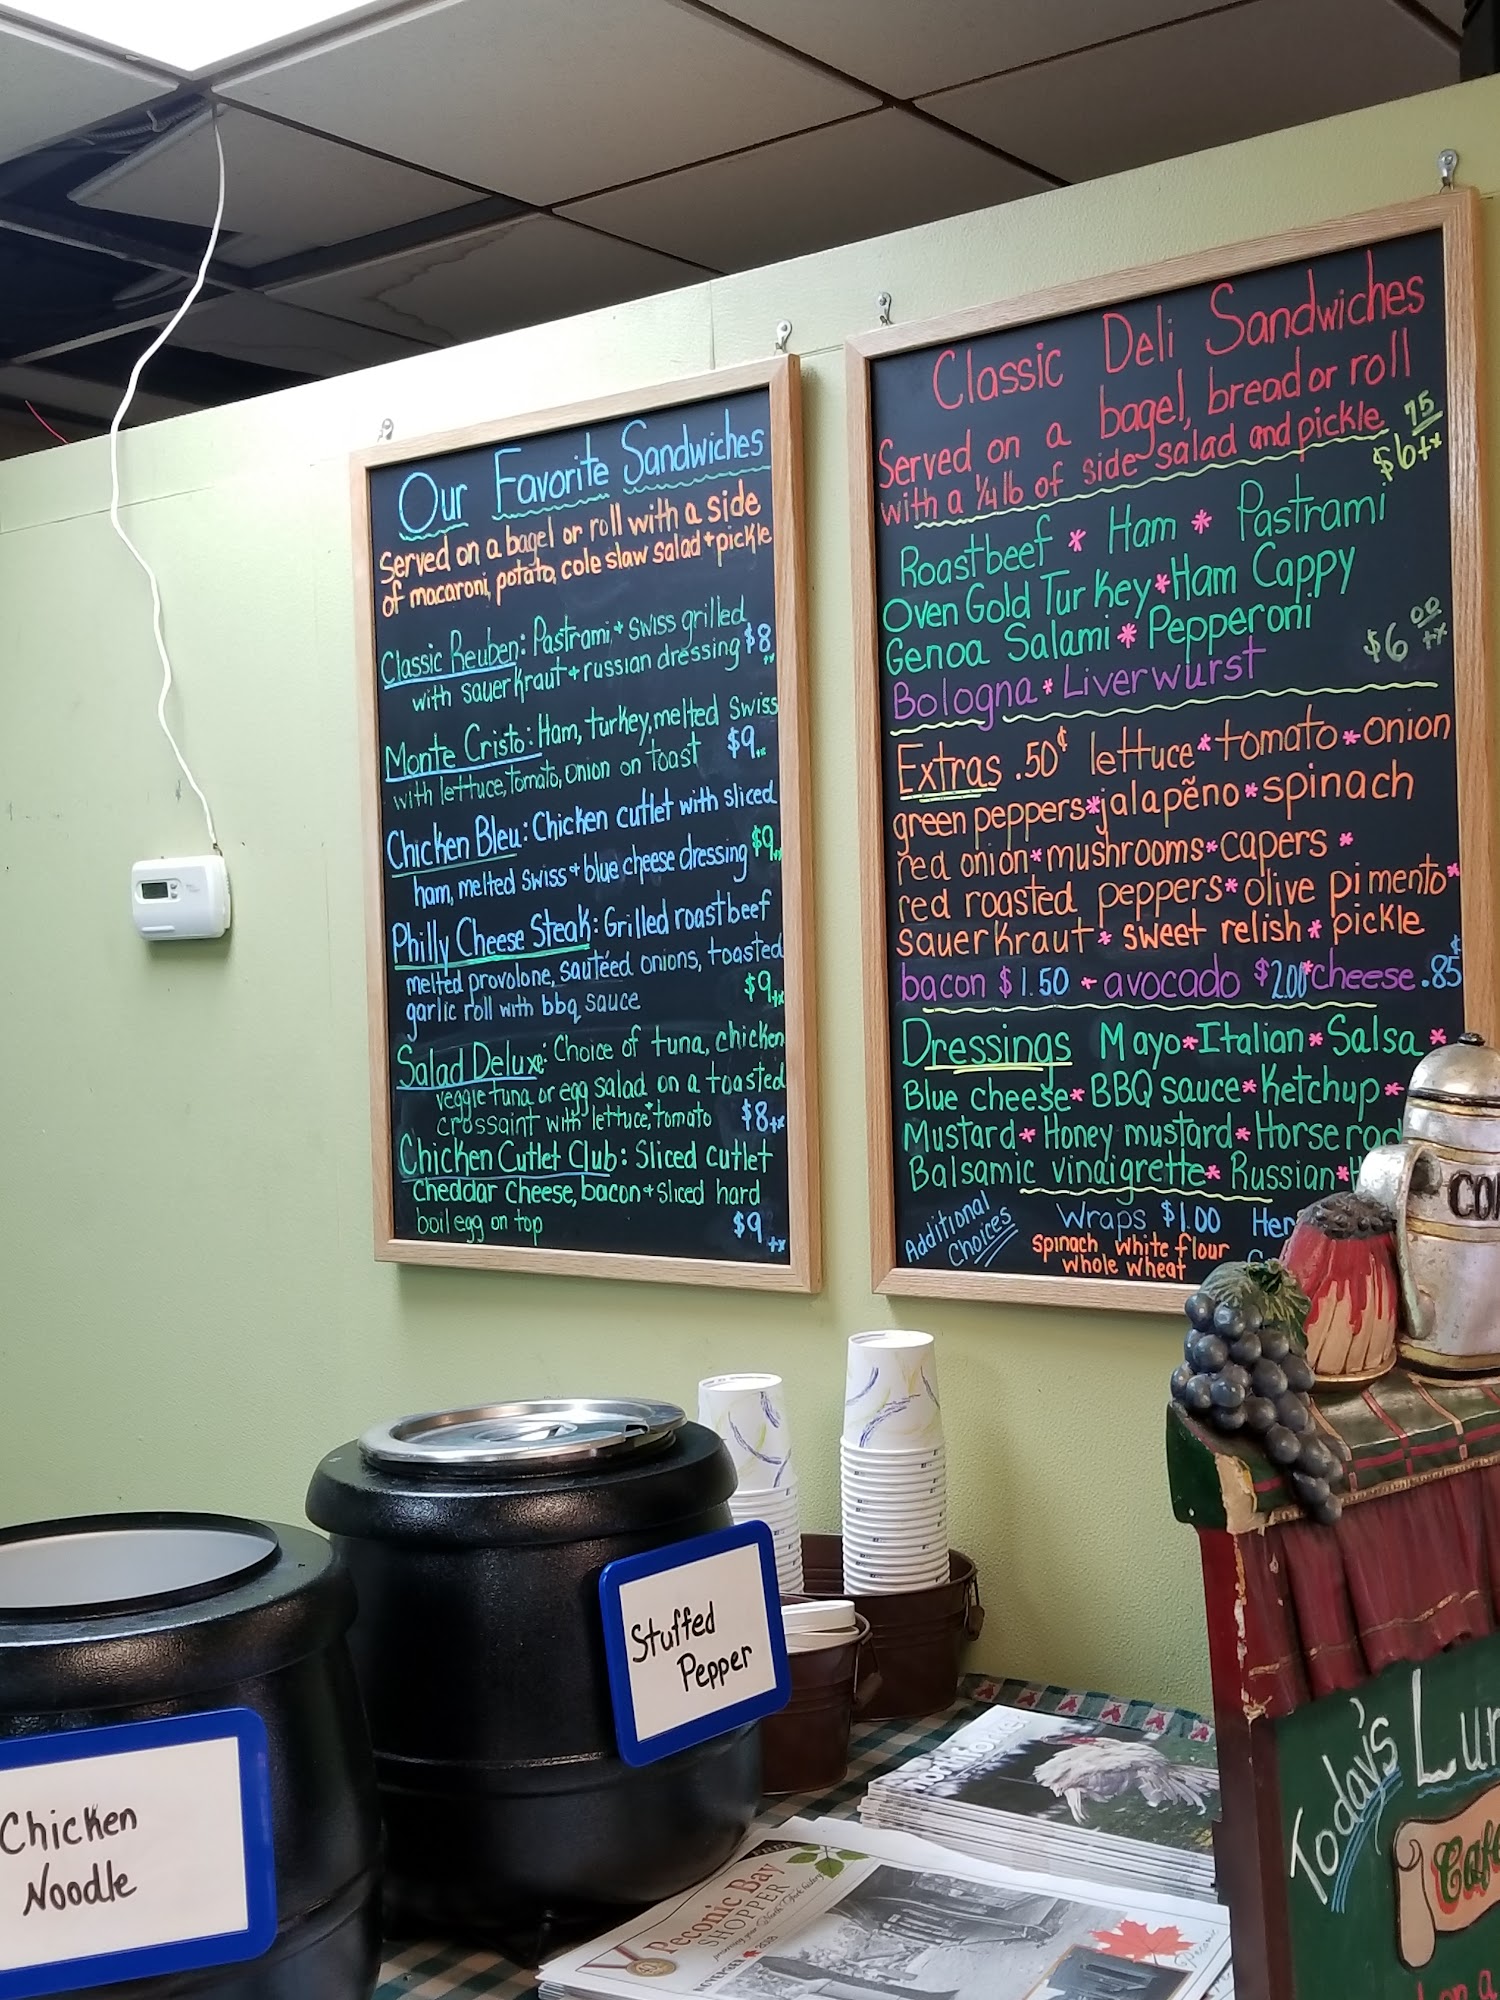 Our Favorite Sandwiches
Served on a bagel or roll with a side
of macaroni, potato, cole slaw salad + pickle
Classic Reuben: Pastrami + Swiss grilled
with sauerkraut + russian dressing $8
Monte Cristo: Ham, turkey, melted Swiss
with lettuce, tomato, onion on toast $9
Chicken Bleu: Chicken cutlet with sliced
ham, melted swiss + blue cheese dressing $9
Philly Cheese Steak: Grilled roastbeef
melted provolone, sautéed onions, toasted
garlic roll with bbq sauce $9+tx
Salad Deluxe: Choice of tuna, chicken
veggie tuna or egg salad on a toasted
crossaint with lettuce, tomato $8+tx
Chicken Cutlet Club: Sliced cutlet
Cheddar Cheese, bacon + sliced hard
boil egg on top $9+tx
Classic Deli Sandwiches
Served on a bagel, bread or roll
with a 1/4 lb of side salad and pickle $6.75+tx
Roastbeef * Ham * Pastrami
Oven Gold Turkey * Ham Cappy
Genoa Salami * Pepperoni
Bologna * Liverwurst $6.00+tx
Extras .50¢ lettuce * tomato * onion
green peppers * jalapẽno * spinach
red onion * mushrooms * capers *
red roasted peppers * olive pimento *
sauerkraut * sweet relish * pickle
bacon $1.50 - avocado $2.00 * cheese .85¢
Dressings Mayo * Italian * Salsa *
Blue cheese * BBQ sauce * Ketchup *
Mustard * Honey mustard * Horserad
Balsamic vinaigrette * Russian * H
Additional
Choices
Wraps $1.00 Her
spinach white flour
whole wheat
CO
Stuffed
Pepper
Chicken
Noodle
northforker
Peconic Bay
SHOPPER
preserving your North Fork history
NOVEMBER 2018
Today's Lun
Cafe
on a